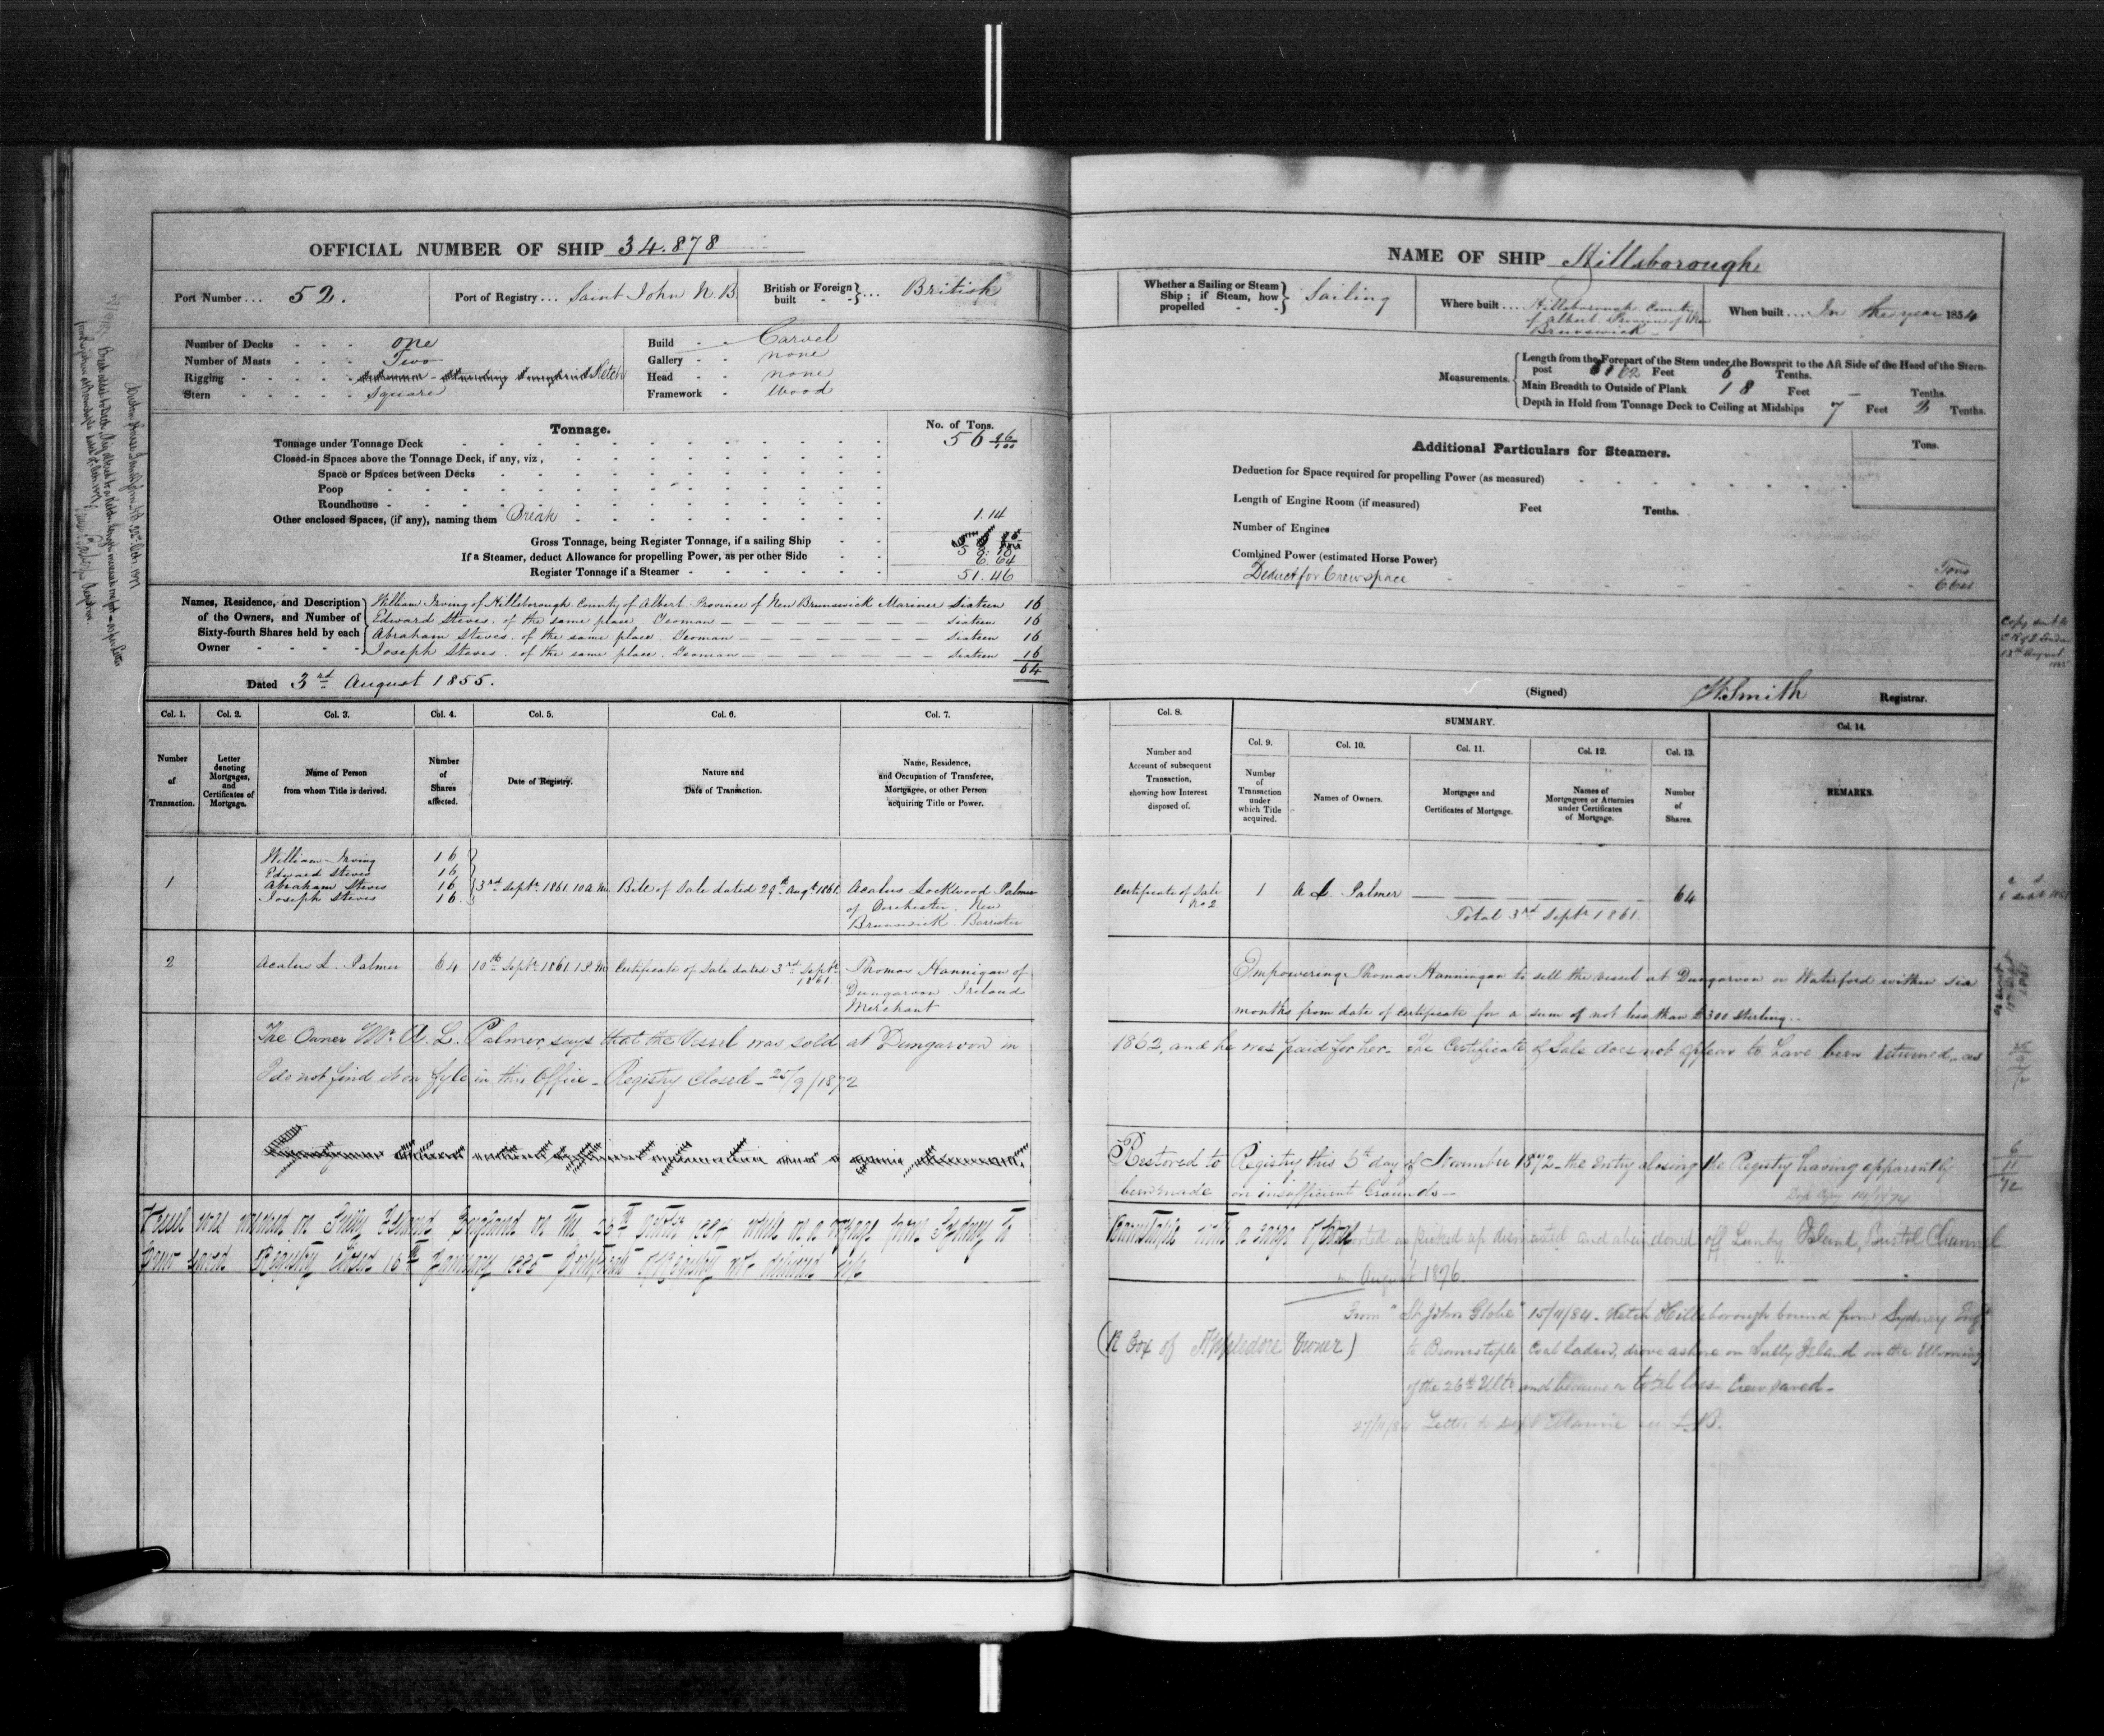 OFFICIAL NUMBER OF SHIP 34.878
Port Number ... 52.
Port of Registry ... Saint John N.B.
British or Foreign built - - } ... British
Number of Decks - - - one
Number of Masts - - - Two
Rigging - - - - - Ketch
Stern - - - - - Square
Build - - Carvel
Gallery - - none
Head - - none
Framework - Wood
Tonnage.
No. of Tons.
Tonnage under Tonnage Deck 56 96/100
Closed-in Spaces above the Tonnage Deck, if any, viz,
Space or Spaces between Decks
Poop
Roundhouse
Other enclosed Spaces, (if any), naming them Break 1.14
Gross Tonnage, being Register Tonnage, if a sailing Ship 58.10
If a Steamer, deduct Allowance for propelling Power, as per other Side 6.64
Register Tonnage if a Steamer - 51.46
Names, Residence, and Description of the Owners, and Number of Sixty-fourth Shares held by each Owner
William Irving of Hillsborough County of Albert Province of New Brunswick Mariner Sixteen 16
Edward Steves of the same place. Yeoman — Sixteen 16
Abraham Steves of the same place. Yeoman — Sixteen 16
Joseph Steves of the same place. Yeoman — Sixteen 16
64
Dated 3rd August 1855.
Col. 1. Col. 2. Col. 3. Col. 4. Col. 5. Col. 6. Col. 7.
Number of Transaction.
Letter denoting Mortgages, and Certificates of Mortgage.
Name of Person from whom Title is derived.
Number of Shares affected.
Date of Registry.
Nature and Date of Transaction.
Name, Residence, and Occupation of Transferee, Mortgagee, or other Person acquiring Title or Power.
William Irving 16
Edward Steves 16
1 Abraham Steves 16 3rd Septr. 1861 10 a.m. Bill of Sale dated 29th Augt. 1861. Acalus Lockwood Palmer
Joseph Steves 16
of Dorchester. New
Brunswick. Barrister
2 Acalus L. Palmer 64 10th Septr. 1861 1 P.M. Certificate of Sale dated 3rd Septr. 1861 Thomas Hannigan of
Dungarvon Ireland
Merchant
The Owner Mr. A. L. Palmer, says that the Vessel was sold at Dungarvon in
I do not find it on fyle in this Office - Registry Closed - 25/9/1872
Vessel was wrecked on Sully Island England on the 26th 1884 while on a voyage from Sydney to
Crew saved Registry Closed 16th January 1885 Certificate of Registry not delivered up
NAME OF SHIP Hillsborough
Whether a Sailing or Steam Ship; if Steam, how propelled - - } Sailing
Where built ... Hillsborough County
of Albert Province of New
Brunswick
When built ... In the year 1854
Measurements.
Length from the Forepart of the Stem under the Bowsprit to the Aft Side of the Head of the Stern-post 62 Feet 6 Tenths.
Main Breadth to Outside of Plank 18 Feet — Tenths.
Depth in Hold from Tonnage Deck to Ceiling at Midships 7 Feet 3 Tenths.
Additional Particulars for Steamers.
Tons.
Deduction for Space required for propelling Power (as measured)
Length of Engine Room (if measured) Feet Tenths.
Number of Engines
Combined Power (estimated Horse Power)
Deduct for Crew space Tons
6.64
(Signed) W. Smith Registrar.
Col. 8. SUMMARY. Col. 14.
Col. 9. Col. 10. Col. 11. Col. 12. Col. 13.
Number and Account of subsequent Transaction, showing how Interest disposed of.
Number of Transaction under which Title acquired.
Names of Owners.
Mortgages and Certificates of Mortgage.
Names of Mortgagees or Attornies under Certificates of Mortgage.
Number of Shares.
REMARKS.
Certificate of Sale No 2 1 A L. Palmer 64
Total 3rd Septr. 1861.
Empowering Thomas Hannigan to sell the vessel at Dungarvon or Waterford within six
months from date of Certificate for a sum of not less than £300 sterling.
1862, and he was paid for her. The Certificate of Sale does not appear to have been returned, as
Restored to Registry this 6th day of November 1872 - the Entry closing the Registry having apparently
been made on insufficient Grounds -
Barnstaple with a cargo of Coal
Reported as picked up dismasted and abandoned off Lundy Island, Bristol Channel
in August 1876.
From "St John Globe" 15/11/84 - Ketch Hillsborough bound from Sydney Eng
(R Cox of Appledore Owner)
to Barnstaple Coal laden, drove ashore on Sully Island on the Morning
of the 26th Ulto. and became a total loss - Crew saved -
27/11/84 Letter to Dept Marine
Copy sent to
London
13th August
1855
25
9
72
6
11
72